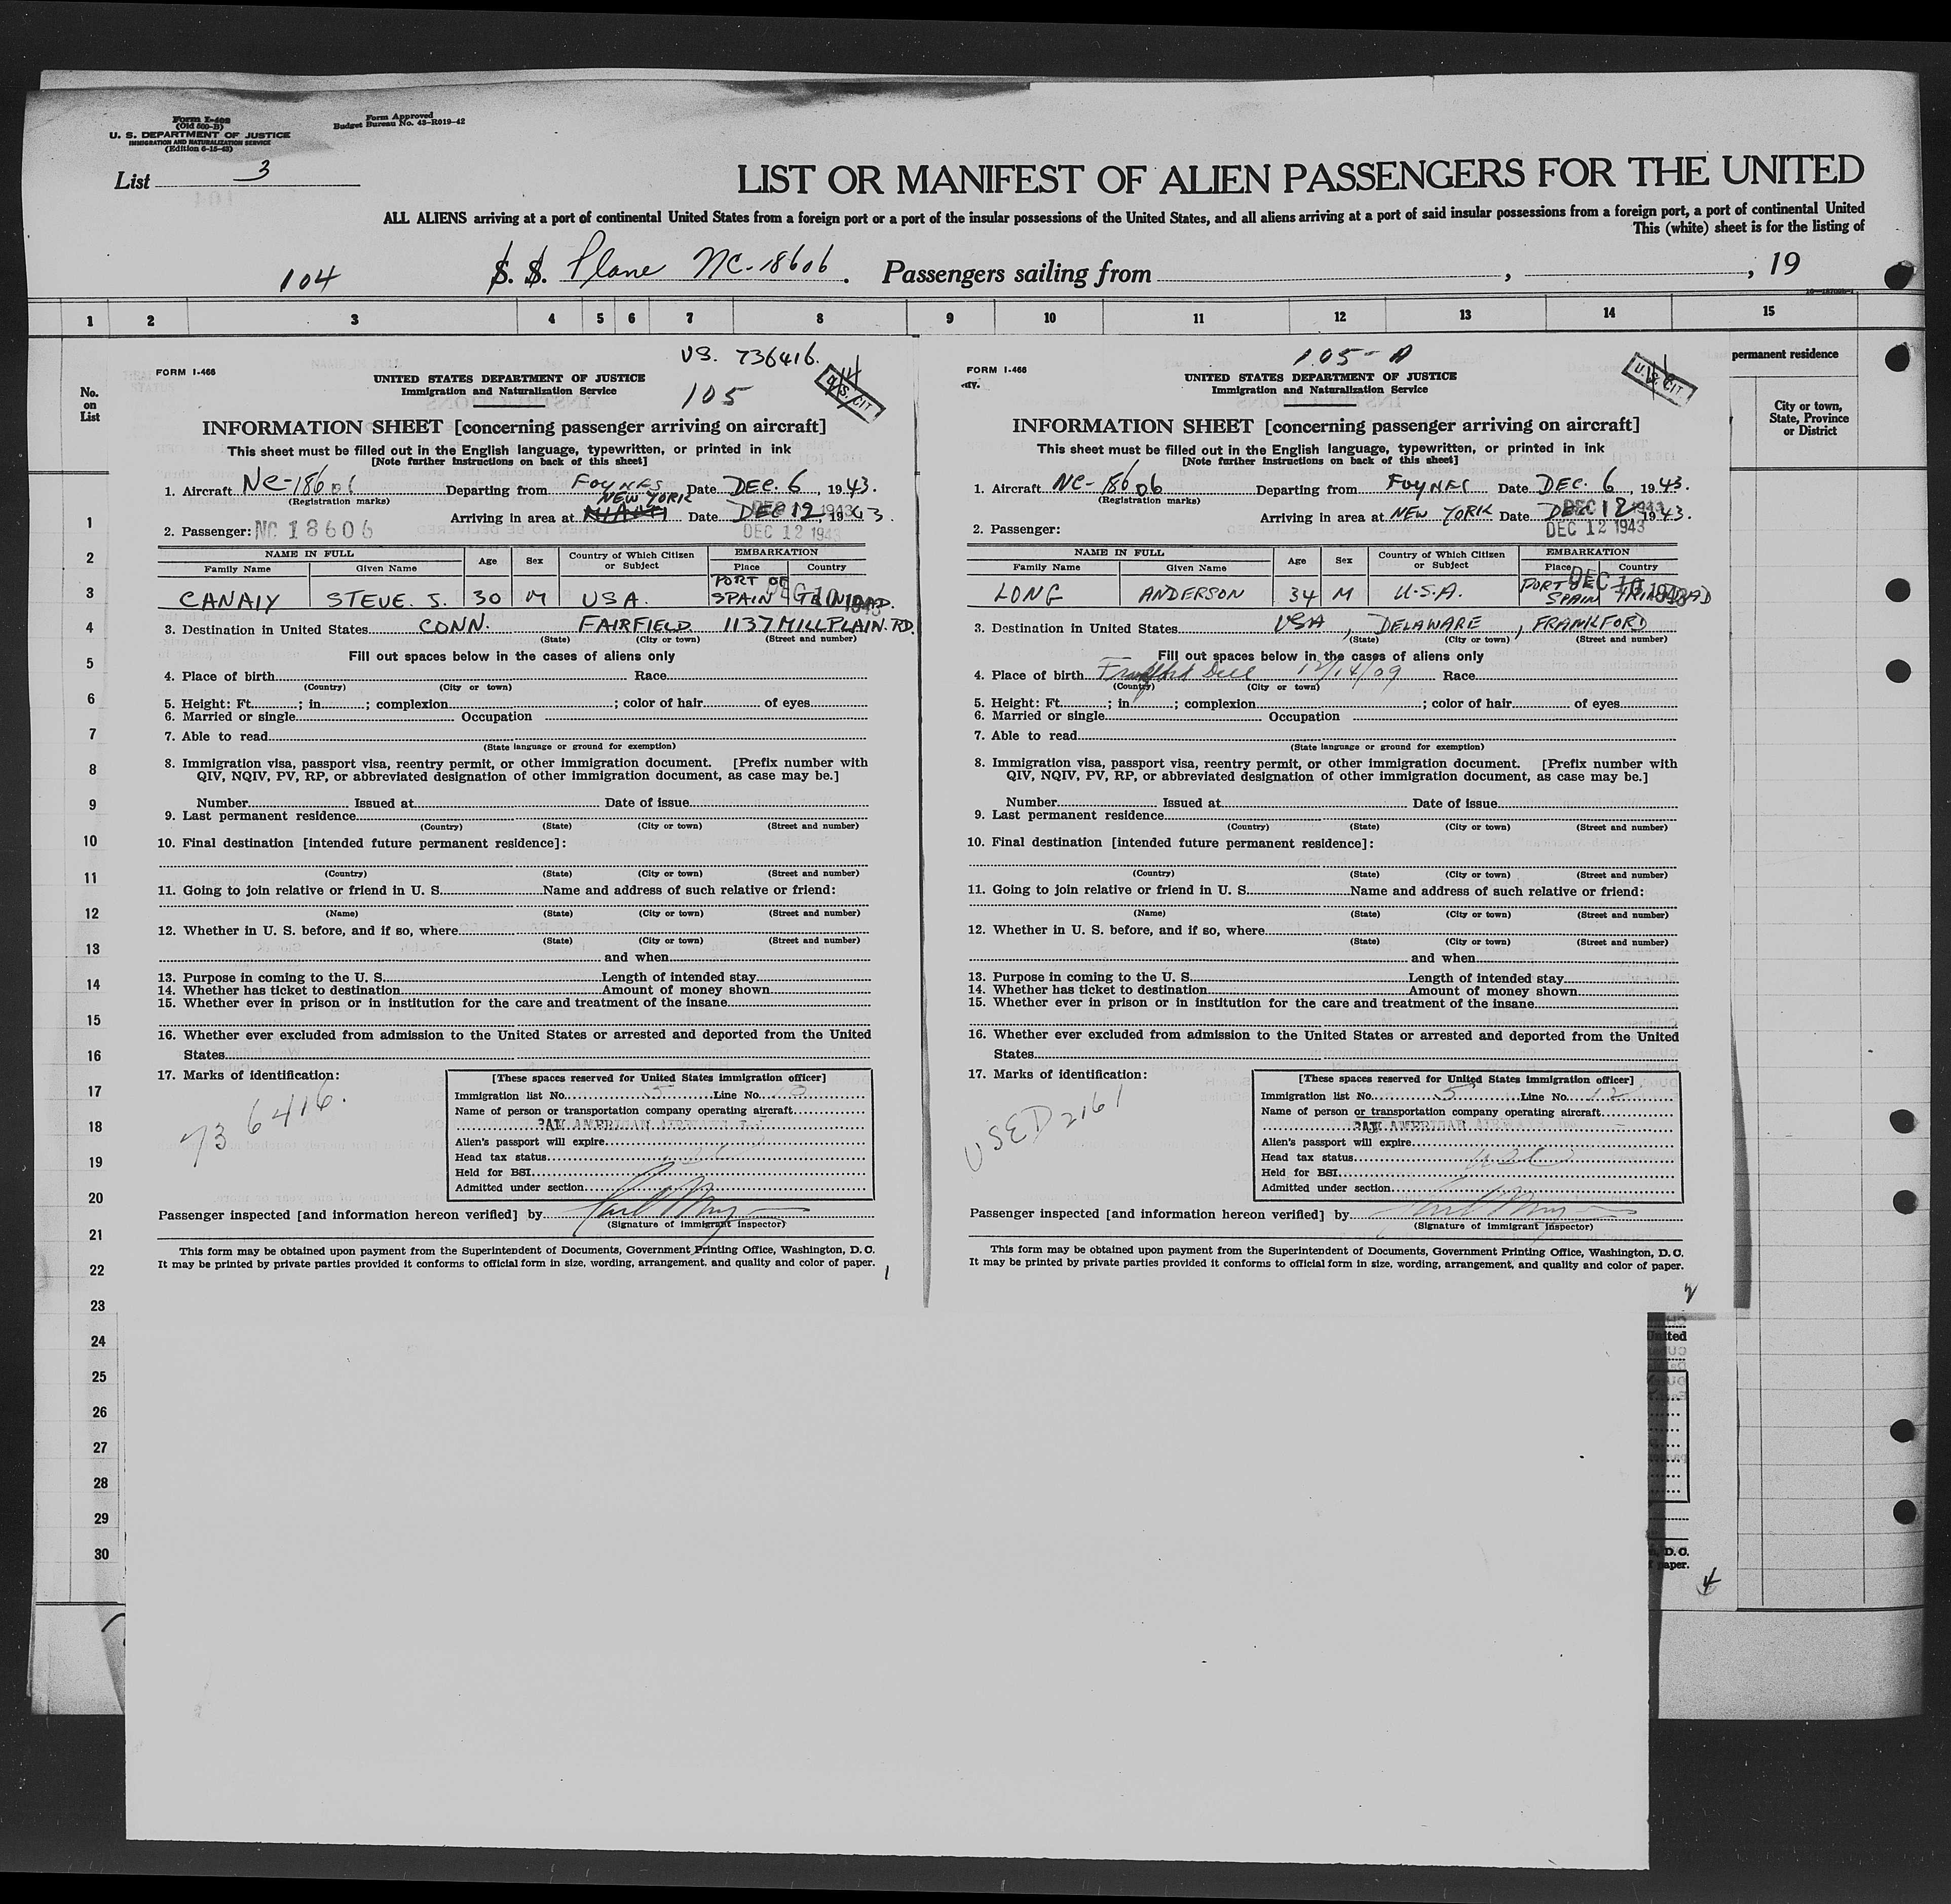 Form I-408
(Old 500-B)
U. S. DEPARTMENT OF JUSTICE
IMMIGRATION AND NATURALIZATION SERVICE
(Edition 6-15-43)
Form Approved
Budget Bureau No. 43-R019-42
List 3
LIST OR MANIFEST OF ALIEN PASSENGERS FOR THE UNITED
ALL ALIENS arriving at a port of continental United States from a foreign port or a port of the insular possessions of the United States, and all aliens arriving at a port of said insular possessions from a foreign port, a port of continental United
This (white) sheet is for the listing of
104 S. S. Plane NC-18606. Passengers sailing from , , 19
1 2 3 4 5 6 7 8 9 10 11 12 13 14 15
No. on List
1
2
3
4
5
6
7
8
9
10
11
12
13
14
15
16
17
18
19
20
21
22
23
24
25
26
27
28
29
30
FORM I-466
US. 736416.
105
U.S. CIT
UNITED STATES DEPARTMENT OF JUSTICE
Immigration and Naturalization Service
INFORMATION SHEET [concerning passenger arriving on aircraft]
This sheet must be filled out in the English language, typewritten, or printed in ink
[Note further instructions on back of this sheet]
1. Aircraft NC-18606 Departing from FOYNES Date DEC. 6, 1943.
(Registration marks)
NEW YORK
Arriving in area at MIAMI Date DEC 12, 1943.
2. Passenger: NC 18606 DEC 12 1943
NAME IN FULL Age Sex Country of Which Citizen or Subject EMBARKATION
Family Name Given Name Place Country
CANALY STEVE. J. 30 M USA. PORT OF SPAIN TRINIDAD.
DEC 10 1943
3. Destination in United States CONN. FAIRFIELD 1137 MILL PLAIN. RD.
(State) (City or town) (Street and number)
Fill out spaces below in the cases of aliens only
4. Place of birth Race
(Country) (City or town)
5. Height: Ft. ; in. ; complexion ; color of hair of eyes
6. Married or single Occupation
7. Able to read
(State language or ground for exemption)
8. Immigration visa, passport visa, reentry permit, or other immigration document. [Prefix number with
QIV, NQIV, PV, RP, or abbreviated designation of other immigration document, as case may be.]
Number Issued at Date of issue
9. Last permanent residence
(Country) (State) (City or town) (Street and number)
10. Final destination [intended future permanent residence]:
(Country) (State) (City or town) (Street and number)
11. Going to join relative or friend in U. S. Name and address of such relative or friend:
(Name) (State) (City or town) (Street and number)
12. Whether in U. S. before, and if so, where
(State) (City or town) (Street and number)
and when
13. Purpose in coming to the U. S. Length of intended stay
14. Whether has ticket to destination Amount of money shown
15. Whether ever in prison or in institution for the care and treatment of the insane
16. Whether ever excluded from admission to the United States or arrested and deported from the United
States
17. Marks of identification:
736416.
[These spaces reserved for United States immigration officer]
Immigration list No. 5 Line No.
Name of person or transportation company operating aircraft
PAN AMERICAN AIRWAYS, Inc
Alien's passport will expire
Head tax status USC
Held for BSI
Admitted under section
Passenger inspected [and information hereon verified] by
(Signature of immigrant inspector)
This form may be obtained upon payment from the Superintendent of Documents, Government Printing Office, Washington, D. C.
It may be printed by private parties provided it conforms to official form in size, wording, arrangement, and quality and color of paper.
1
FORM I-466
105-A
U.S. CIT
UNITED STATES DEPARTMENT OF JUSTICE
Immigration and Naturalization Service
INFORMATION SHEET [concerning passenger arriving on aircraft]
This sheet must be filled out in the English language, typewritten, or printed in ink
[Note further instructions on back of this sheet]
1. Aircraft NC-18606 Departing from FOYNES Date DEC. 6, 1943.
(Registration marks)
Arriving in area at NEW YORK Date DEC 12 1943.
2. Passenger: DEC 12 1943
NAME IN FULL Age Sex Country of Which Citizen or Subject EMBARKATION
Family Name Given Name Place Country
LONG ANDERSON 34 M U.S.A. PORT OF SPAIN TRINIDAD
DEC 10 1943
3. Destination in United States USA, DELAWARE, FRANKFORD
(State) (City or town) (Street and number)
Fill out spaces below in the cases of aliens only
4. Place of birth Frankford Del 12/14/09 Race
(Country) (City or town)
5. Height: Ft. ; in. ; complexion ; color of hair of eyes
6. Married or single Occupation
7. Able to read
(State language or ground for exemption)
8. Immigration visa, passport visa, reentry permit, or other immigration document. [Prefix number with
QIV, NQIV, PV, RP, or abbreviated designation of other immigration document, as case may be.]
Number Issued at Date of issue
9. Last permanent residence
(Country) (State) (City or town) (Street and number)
10. Final destination [intended future permanent residence]:
(Country) (State) (City or town) (Street and number)
11. Going to join relative or friend in U. S. Name and address of such relative or friend:
(Name) (State) (City or town) (Street and number)
12. Whether in U. S. before, and if so, where
(State) (City or town) (Street and number)
and when
13. Purpose in coming to the U. S. Length of intended stay
14. Whether has ticket to destination Amount of money shown
15. Whether ever in prison or in institution for the care and treatment of the insane
16. Whether ever excluded from admission to the United States or arrested and deported from the United
States
17. Marks of identification:
USED 2161
[These spaces reserved for United States immigration officer]
Immigration list No. 5 Line No. 12
Name of person or transportation company operating aircraft
PAN AMERICAN AIRWAYS, Inc.
Alien's passport will expire
Head tax status USC
Held for BSI
Admitted under section
Passenger inspected [and information hereon verified] by
(Signature of immigrant inspector)
This form may be obtained upon payment from the Superintendent of Documents, Government Printing Office, Washington, D. C.
It may be printed by private parties provided it conforms to official form in size, wording, arrangement, and quality and color of paper.
permanent residence
City or town,
State, Province
or District
United
D. C.
paper.
4